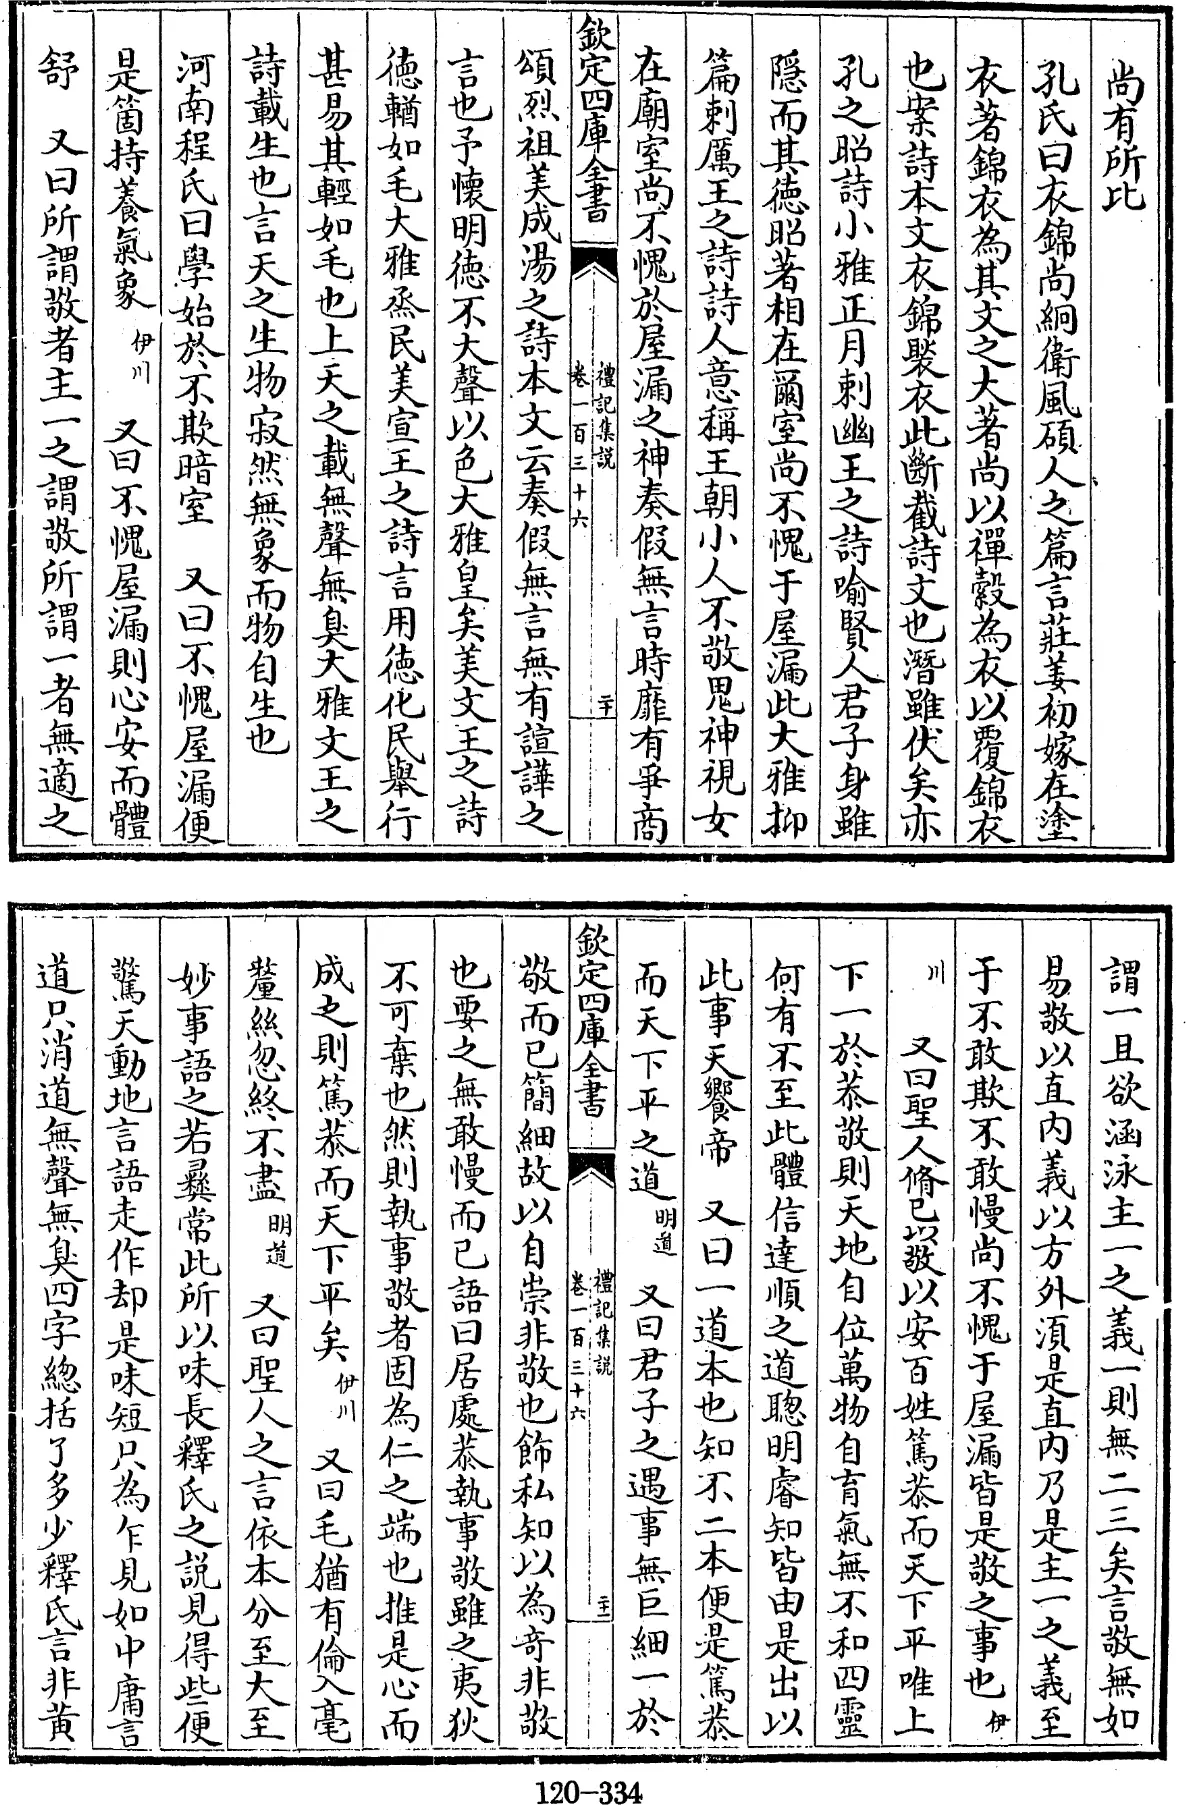 尚有所比
孔氏曰衣錦尚絅衛風碩人之篇言莊姜初嫁在塗
衣著錦衣為其文之大著尚以襌縠為衣以覆錦衣
也案詩本文衣錦褧衣此斷截詩文也潛雖伏矣亦
孔之昭詩小雅正月刺幽王之詩喻賢人君子身雖
隱而其徳昭著相在爾室尚不愧于屋漏此大雅抑
篇刺厲王之詩詩人意稱王朝小人不敬鬼神視女
在廟室尚不愧於屋漏之神奏假無言時靡有爭商
欽定四庫全書
禮記集説
卷一百三十六
二十
頌烈祖美成湯之詩本文云奏假無言無有諠譁之
言也予懷明徳不大聲以色大雅皇矣美文王之詩
徳輶如毛大雅烝民美宣王之詩言用徳化民舉行
甚易其輕如毛也上天之載無聲無臭大雅文王之
詩載生也言天之生物寂然無象而物自生也
河南程氏曰學始於不欺暗室 又曰不愧屋漏便
是箇持養氣象伊川 又曰不愧屋漏則心安而體
舒 又曰所謂敬者主一之謂敬所謂一者無適之
謂一且欲涵泳主一之義一則無二三矣言敬無如
易敬以直内義以方外湏是直内乃是主一之義至
于不敢欺不敢慢尚不愧于屋漏皆是敬之事也伊
川 又曰聖人脩己以敬以安百姓篤恭而天下平唯上
下一於恭敬則天地自位萬物自育氣無不和四靈
何有不至此體信達順之道聰明睿知皆由是出以
此事天饗帝 又曰一道本也知不二本便是篤恭
而天下平之道明道 又曰君子之遇事無巨細一於
欽定四庫全書
禮記集説
卷一百三十六
二十一
敬而已簡細故以自崇非敬也飾私知以為奇非敬
也要之無敢慢而已語曰居處恭執事敬雖之夷狄
不可棄也然則執事敬者固為仁之端也推是心而
成之則篤恭而天下平矣伊川 又曰毛猶有倫入毫
釐絲忽終不盡明道 又曰聖人之言依本分至大至
妙事語之若彛常此所以味長釋氏之説見得些便
驚天動地言語走作却是味短只為乍見如中庸言
道只消道無聲無臭四字總括了多少釋氏言非黄
120-334